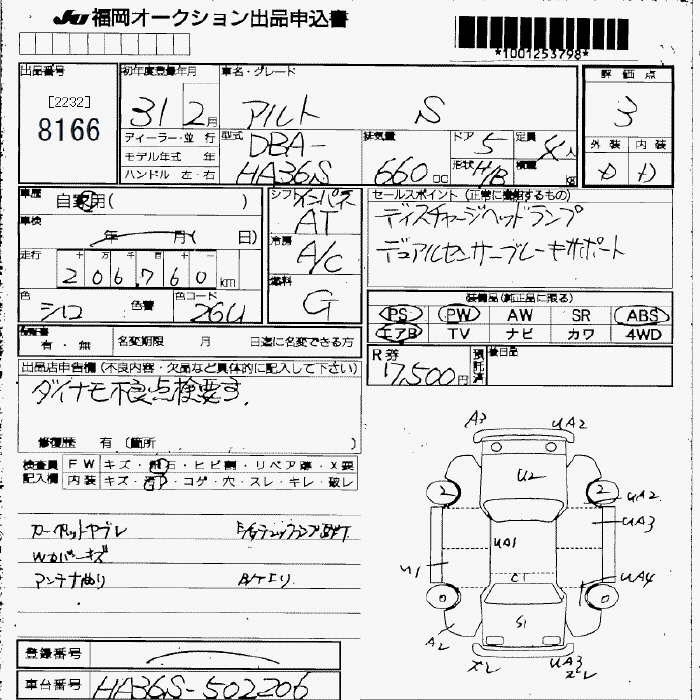 JU 福岡オークション出品申込書
*1001253798*
出品番号
[2232]
8166
初年度登録年月
31 2月
車名・グレード
アルト S
評価点
3
外装 内装
D D
ディーラー・並行
モデル年式 年
ハンドル 左・右
型式
DBA-
HA36S
排気量
660 cc
ドア 5
定員 4人
形状 H/B
積量 kg
車歴
自家用( )
車検
年 月( 日)
走行
十万 万 千 百 十 一
206,760 km
色
シロ
色替
色コード
26U
シフト インパネ
AT
冷房
A/C
燃料
G
セールスポイント (正常に機能するもの)
ディスチャージヘッドランプ
デュアルセンサーブレーキサポート
装備品(純正品に限る)
PS PW AW SR ABS
エアB TV ナビ カワ 4WD
保証書
有・無
名変期限 月 日迄に名変できる方
R券
17,500円
預託済
後日品
出品店申告欄 (不良内容・欠品など具体的に記入して下さい)
ダイナモ不良点検要す.
修復歴 有 〔箇所 〕
検査員
記入欄
FW キズ・飛石・ヒビ割・リペア跡・X要
内装 キズ・汚・コゲ・穴・スレ・キレ・破レ
カーペットヤブレ
Wカバーキズ
アンテナ
A3
UA2
U2
2
2
UA2
UA3
UA1
U1
C1
UA4
0
0
S1
A2
UA3
登録番号
車台番号
HA36S-502206